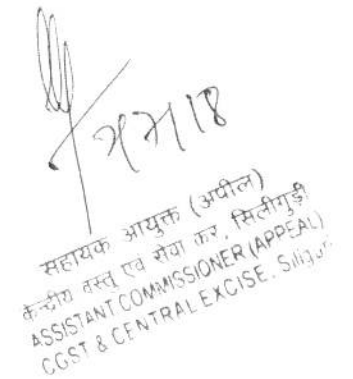 सहायक आयुक्त (अपील)
केन्द्रीय वस्तु एवं सेवा कर, सिलीगुड़ी
ASSISTANT COMMISSIONER (APPEAL)
CGST & CENTRAL EXCISE, Siliguri